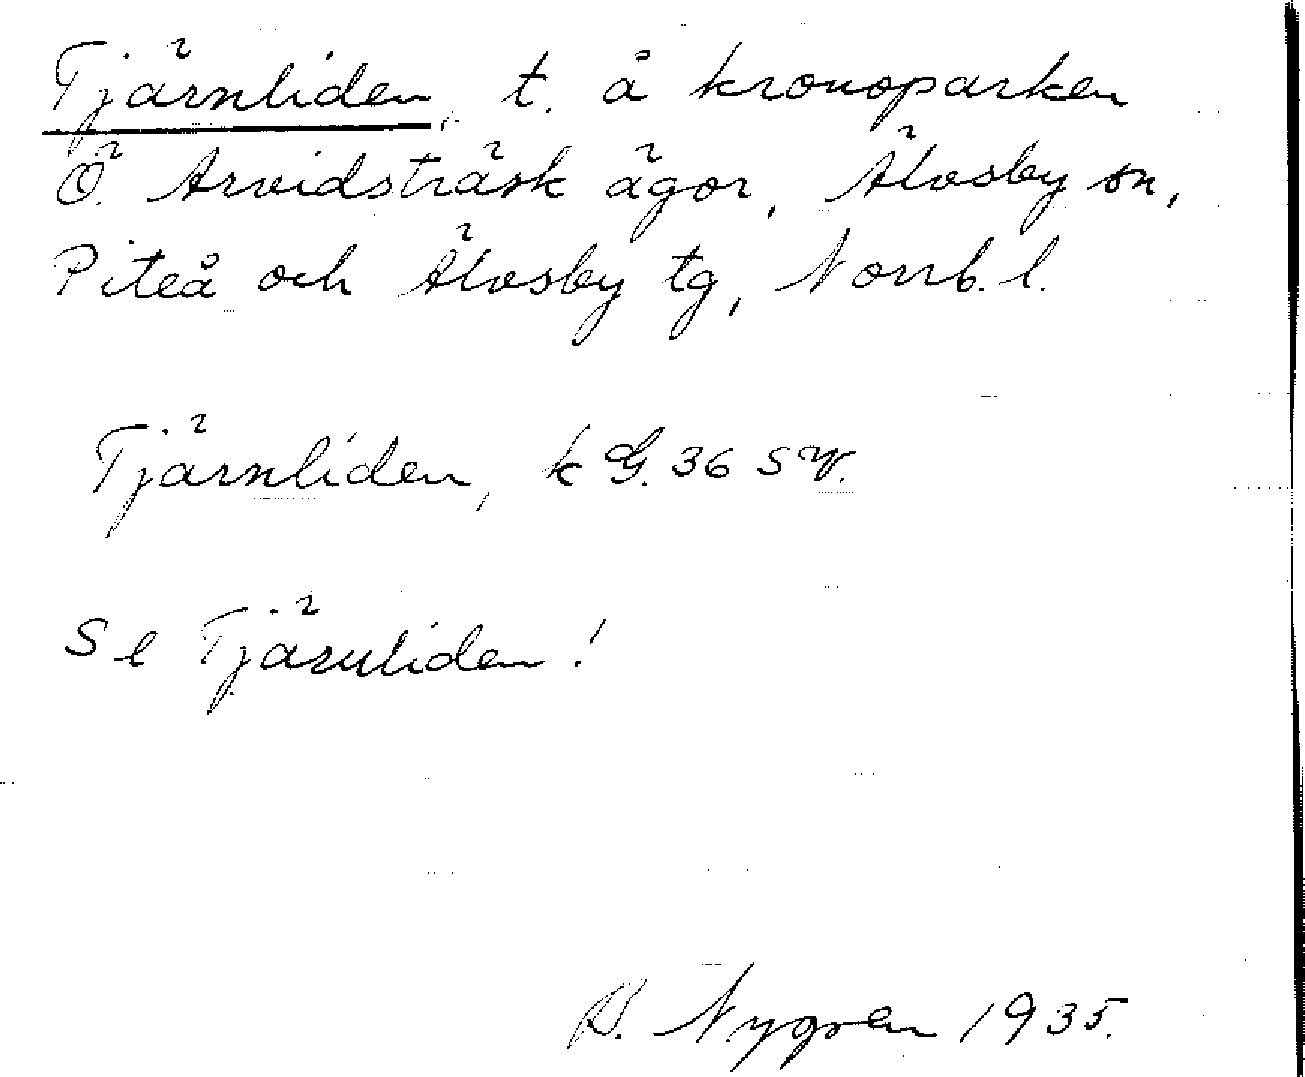 Tjärnliden, t. å kronoparken
Ö. Arvidsträsk ägor, Älvsby sn,
Piteå och Älvsby tg, Norrb. l.
Tjärnliden, k G. 36 SV.
Se Tjärnliden!
B. Nygren 1935.